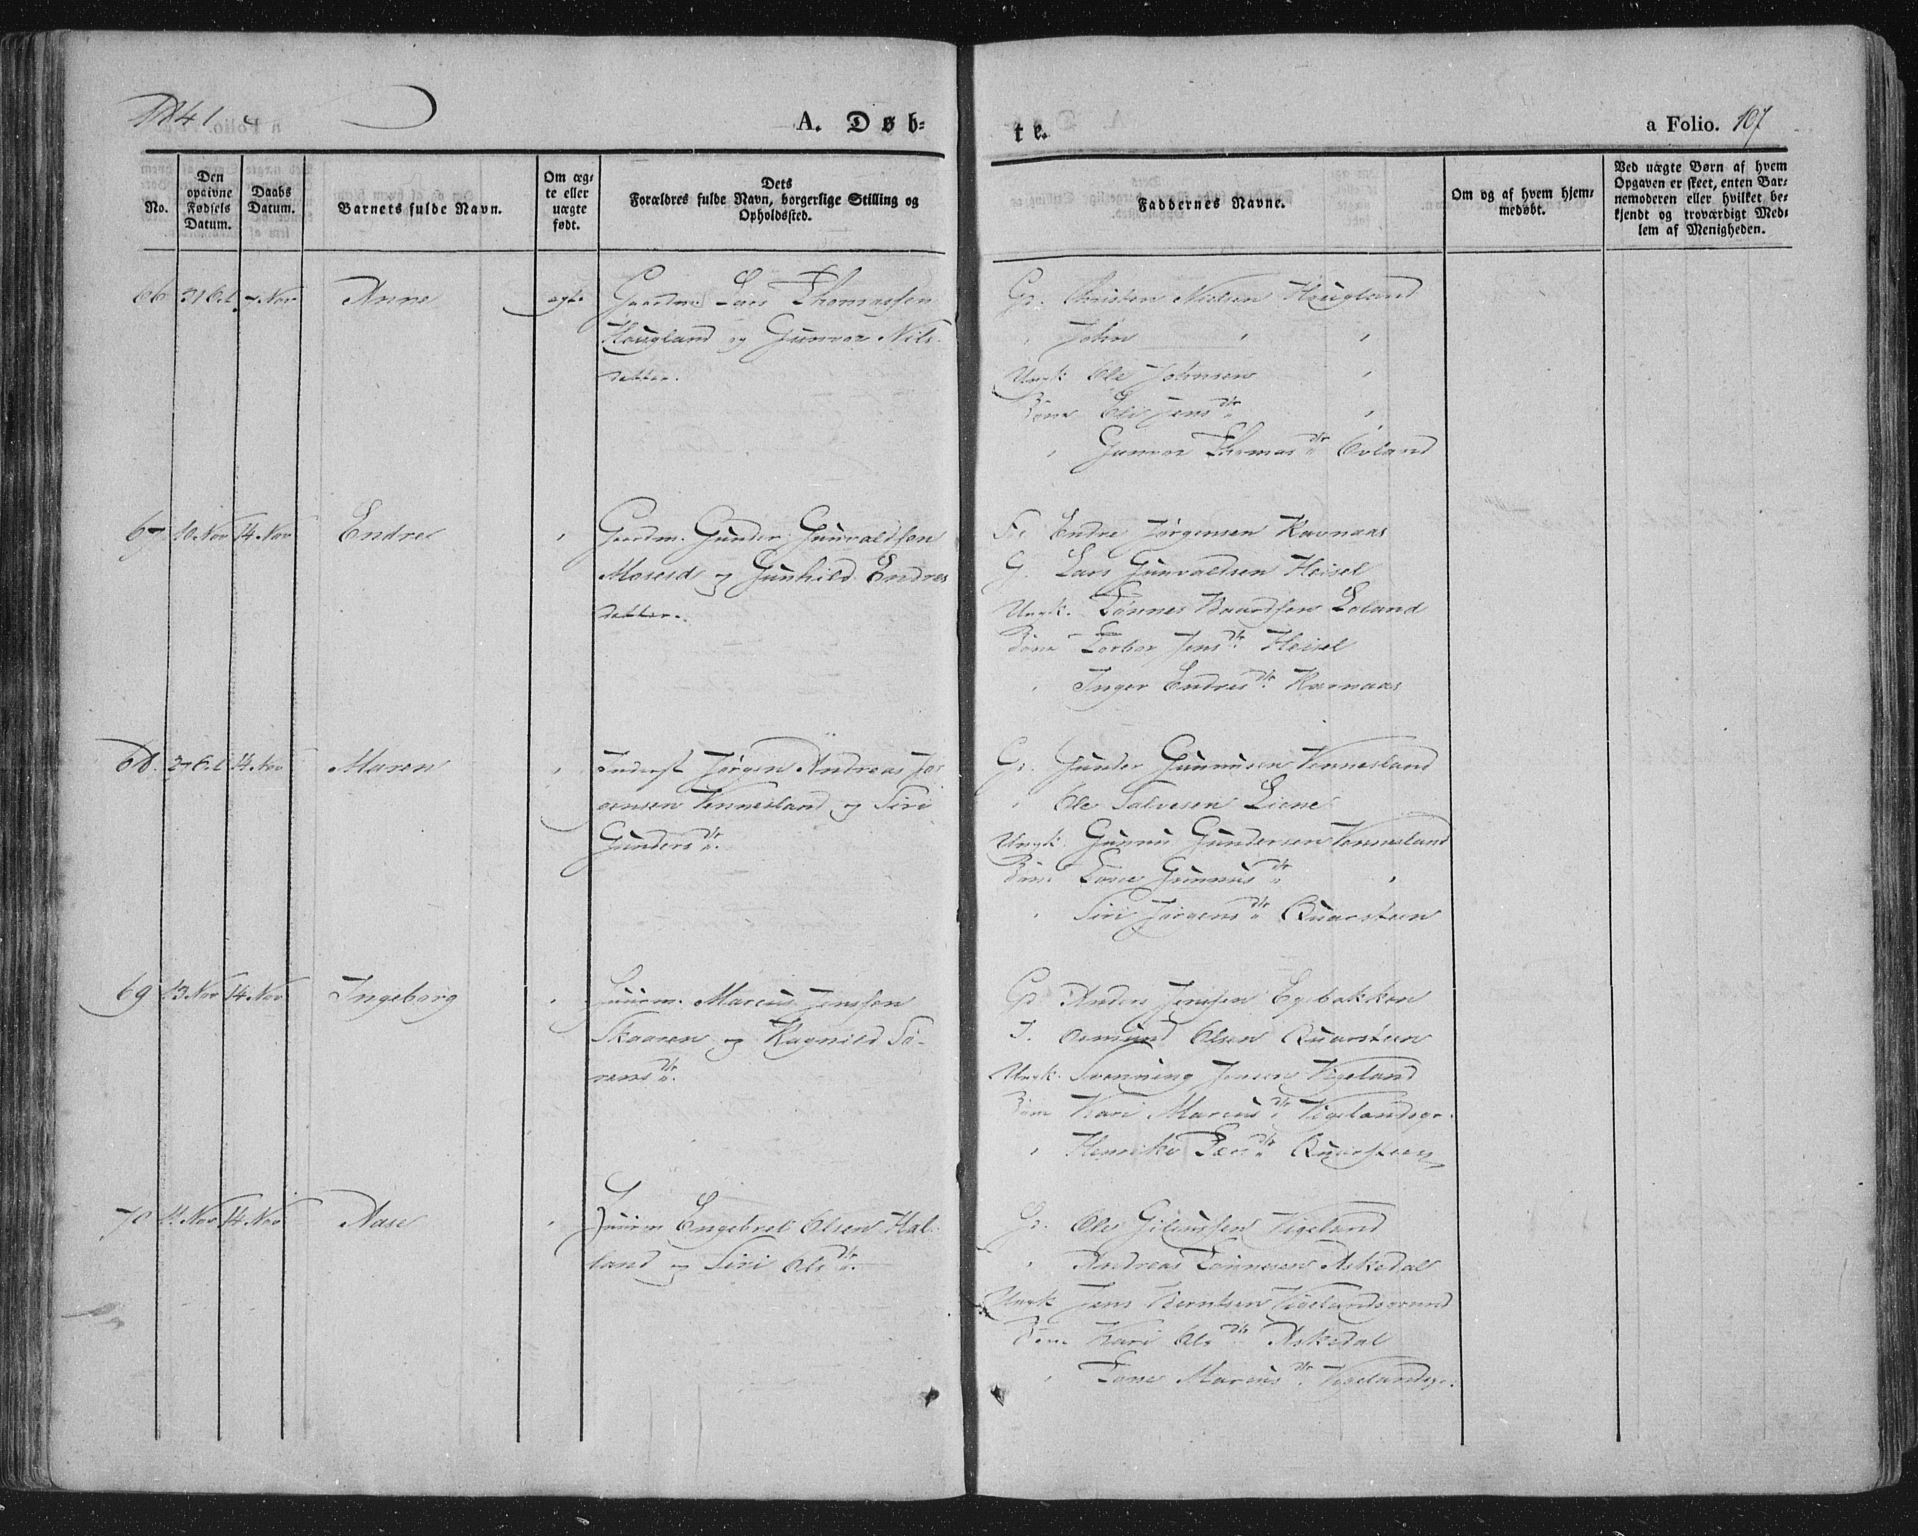 1841
A. Døb-
te.
a Folio. 107
No.
Den opgivne Fødsels Datum.
Daabs Datum.
Barnets fulde Navn.
Om ægte eller uægte født.
Dets Forældres fulde Navn, borgerlige Stilling og Opholdssted.
Faddernes Navne.
Om og af hvem hjemmedøbt.
Ved uægte Børn af hvem Opgaven er skeet, enten Barnemoderen eller hvilket bekjendt og troværdigt Medlem af Menigheden.
66 31 Oct 7 Nov Anne ægte Gaardm. Lars Thomassen
Hougland og Gunvor Nils-
datter.
Gr. Christen Nielsen Hougland
" John " "
Ungk. Ole Johnsen "
Eli Jensdtr "
" Gunvor Thomasdtr Øvland
67 10 Nov 14 Nov Endre " Gaardm. Gunder Gunvaldsen
Moseid og Gunhild Endres
datter.
Endre Jørgensen Ravnaas
G. Lars Gunvaldsen Heisel
Ungk. Tønnes Baardsen Loland
Torbor Jensdtr Heisel
" Inger Endresdtr Ravnaas
68. 27 Oct 14 Nov Maren " Inderst Jørgen Andreas Jør
gensen Vennesland og Siri
Gundersdtr.
Gr. Gunder Gunnusen Vennesland
" Ole Salvesen Liene
Ungk. Gunnu Gundersen Vennesland
Tone Gunnusdtr "
" Siri Jørgensdtr Quarsteen
69 13 Nov 14 Nov Ingeborg " Huusm. Marcus Jenssen
Skaaren og Ragnild Sø-
rensdtr.
Gr. Anders Jenssen Egebakken
I. Osmund Olsen Quarsteen
Ungk. Svenning Jensen Vigeland
Kari Marcusdtr Vigelandsgr.
" Henrike dtr Quarsteen
70 11 Nov 14 Nov Aase " Huusm Engebret Olsen Hal-
land og Siri Olsdtr.
Gr. Ole Vigeland
" Andreas Tønnesen Askedal
Ungk Jens Berntsen Vigelandsgrund
Kari Olsdtr Askedal
" Tone Marcusdtr. Vigelandsgr.